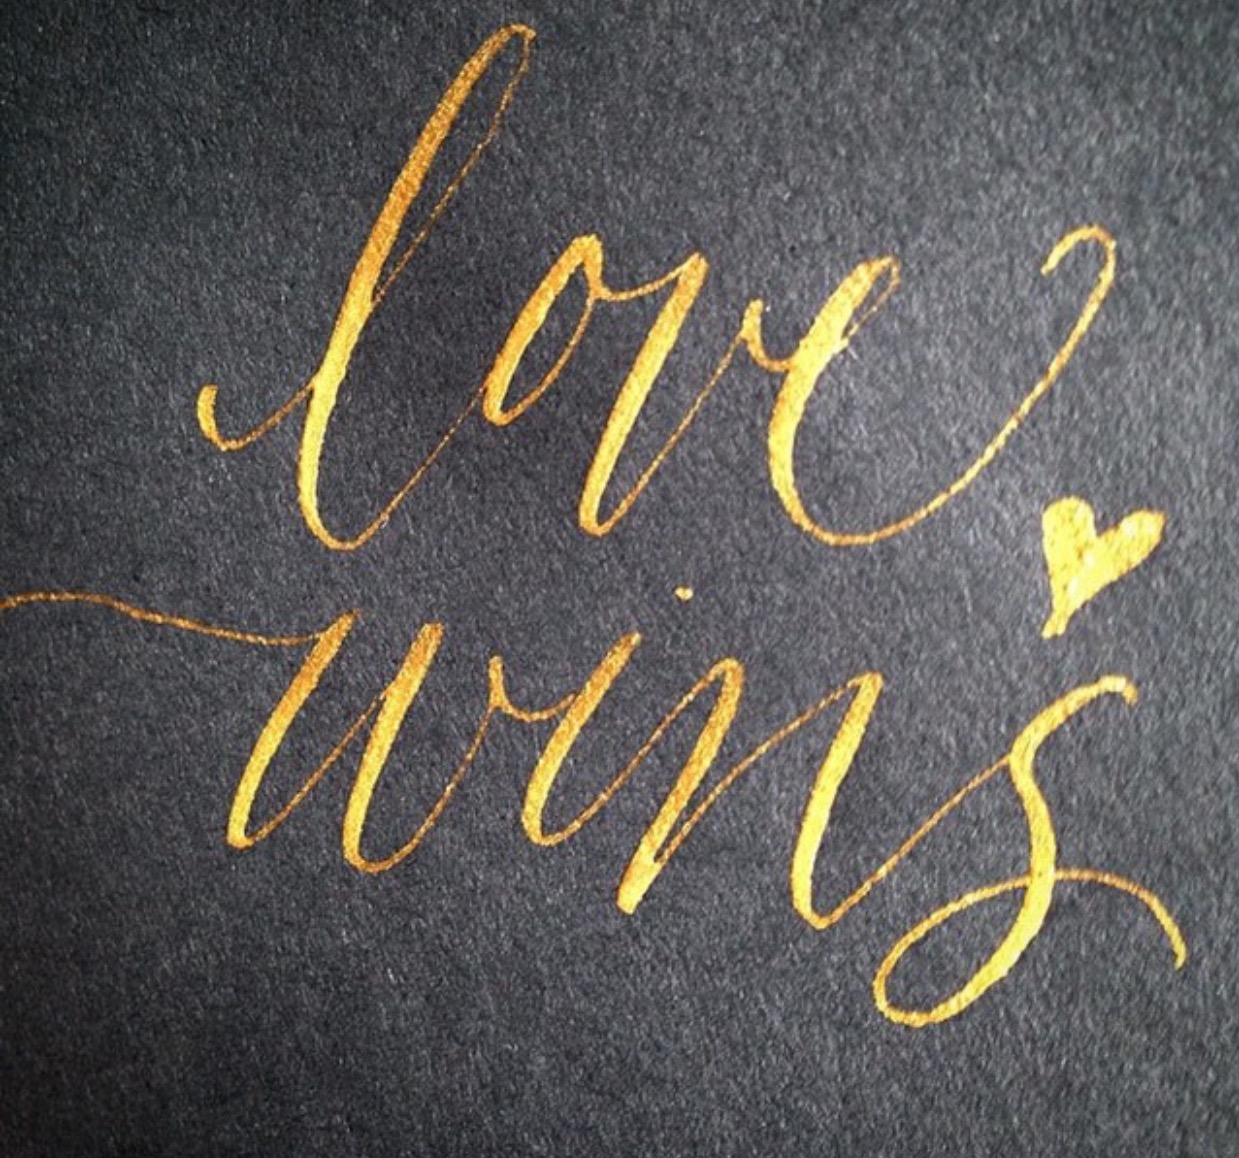 love
wins